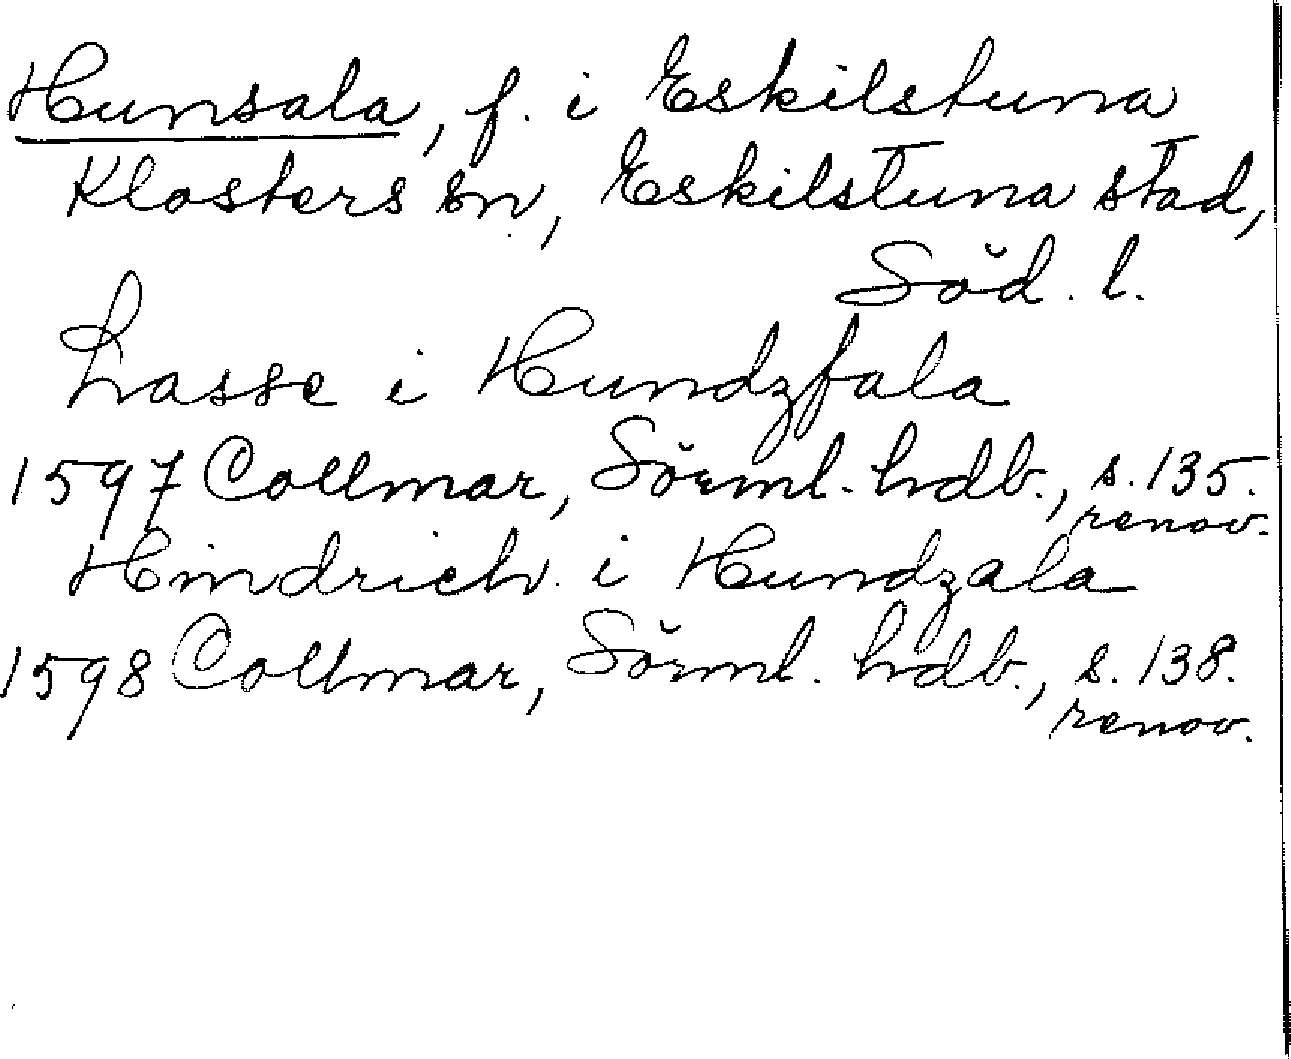 Hunsala, f. i Eskilstuna
Klosters sn, Eskilstuna stad,
Söd. l.
Lasse i Hundzfala
1597 Collmar, Sörml. hdb., s. 135.
renov.
Hindrich i Hundzala
1598 Collmar, Sörml. hdb., s. 138.
renov.